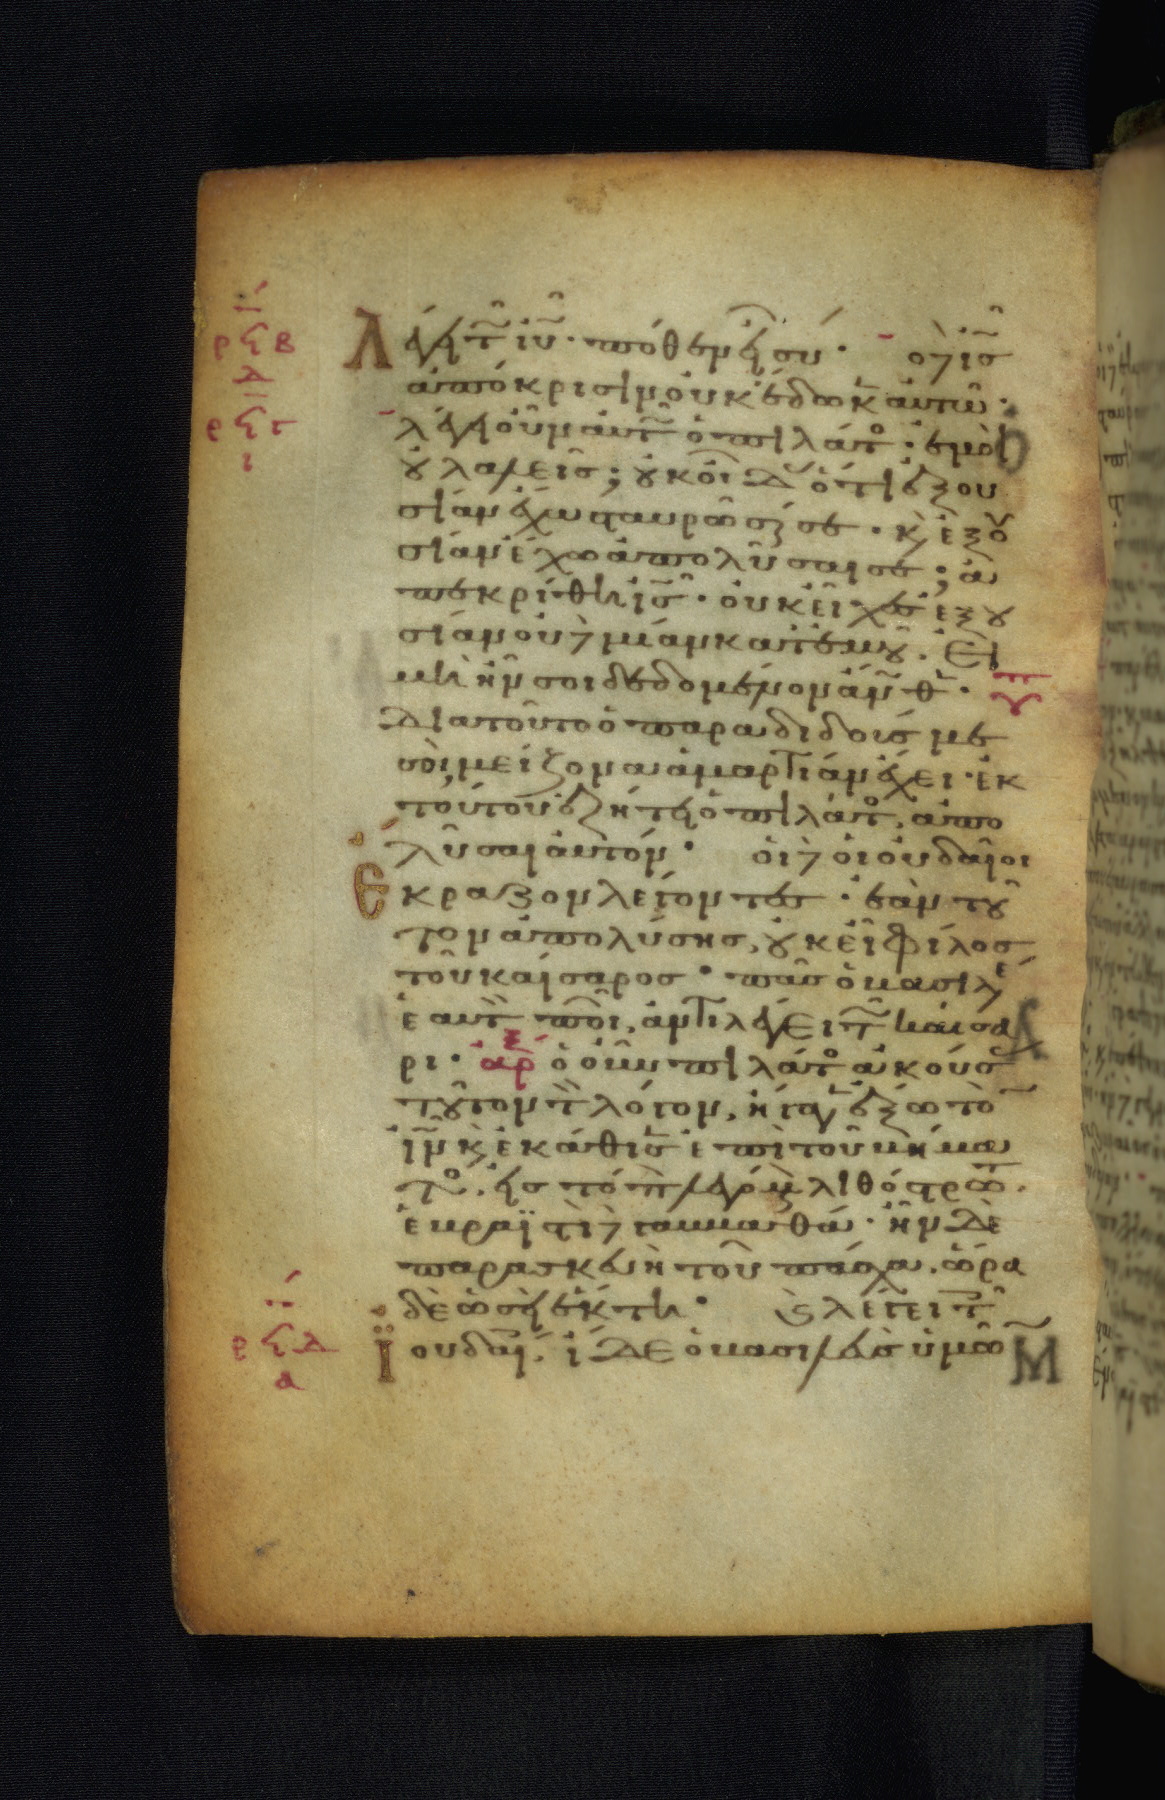 Λέγει τῶ ἰῦ· πόθεν εἶ σύ· ὁ δὲ ἰς
ἀπόκρισιν οὐκ ἔδωκεν αὐτῶ·
λέγει οὖν αὐτῶ ὁ πιλάτος· ἐμοὶ
οὐ λαλεῖς; οὐκ οἶδας ὅτι ἐξου
σίαν ἔχω σταυρῶσαί σε· καὶ ἐξου
σίαν ἔχω ἀπολῦσαι σε; ἀ
πεκρίθη ἰς· οὐκ εἶχες ἐξου
σίαν οὐδεμίαν κατ' ἐμοῦ· εἰ
μὴ ἦν σοι δεδομένον ἄνωθεν·
Διατοῦτο ὁ παραδιδούς με
σοι μείζονα ἁμαρτίαν ἔχει· ἐκ
τούτου ἐζήτει ὁ πιλάτος, ἀπο
λῦσαι αὐτόν· οἱ δὲ ἰουδαῖοι
Ἔκραζον λέγοντες· ἐὰν τοῦ
τον ἀπολύσης, οὐκ εἶ φίλος
τοῦ καίσαρος· πᾶς ὁ βασιλέα
ἑαυτὸν ποιῶν, ἀντιλέγει τῶ καίσα
ρι· ἀρχ ὁ οὖν πιλάτος ἀκούσας
τοῦτον τὸν λόγον, ἤγαγεν ἔξω τὸν
ἰν καὶ ἐκάθισεν ἐπὶ τοῦ βήμα
τος, εἰς τόπον λεγόμενον λιθόστρωτον.
ἑβραϊστὶ δὲ γαββαθά· ἦν δὲ
παρασκευὴ τοῦ πάσχα, ὥρα
δὲ ὡσεὶ ἕκτη· καὶ λέγει τοῖς
Ἰουδαίοις, ἴδε ὁ βασιλεὺς ὑμῶν